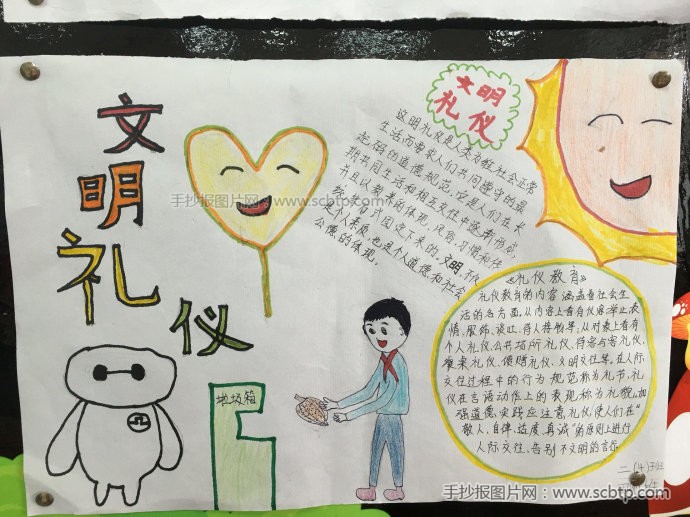 文明礼仪
文明
礼仪
文明礼仪是人类为维社会正常
生活而要求人们共同遵守的最
起码的道德规范,它是人们在长
期共同生活和相互交往中逐渐形成,
并且以
风俗、习惯和传
统等方式固定下来的,文明,不仅
是个人素质,也是个人道德和社会
公德的体现。
《礼仪教育》
礼仪教育的内容涵盖着社会生
活的各方面,从内容上看有仪容举止、表
情、服饰、谈吐、待人接物等;从对象上看有
个人礼仪、公共场所礼仪、待客与客礼仪、
餐桌礼仪、馈赠礼仪、文明交往等。在人际
交往过程中的行为规范称为礼节,礼
仪在言语动作上的表现称为礼貌。加
强道德实践应注意礼仪,使人们在“
敬人、自律、适度、真诚”的原则上进行
人际交往,告别不文明的言行
垃圾箱
二(4)班
手抄报图片网:www.scbtp.com
手抄报图片网:www.scbtp.com